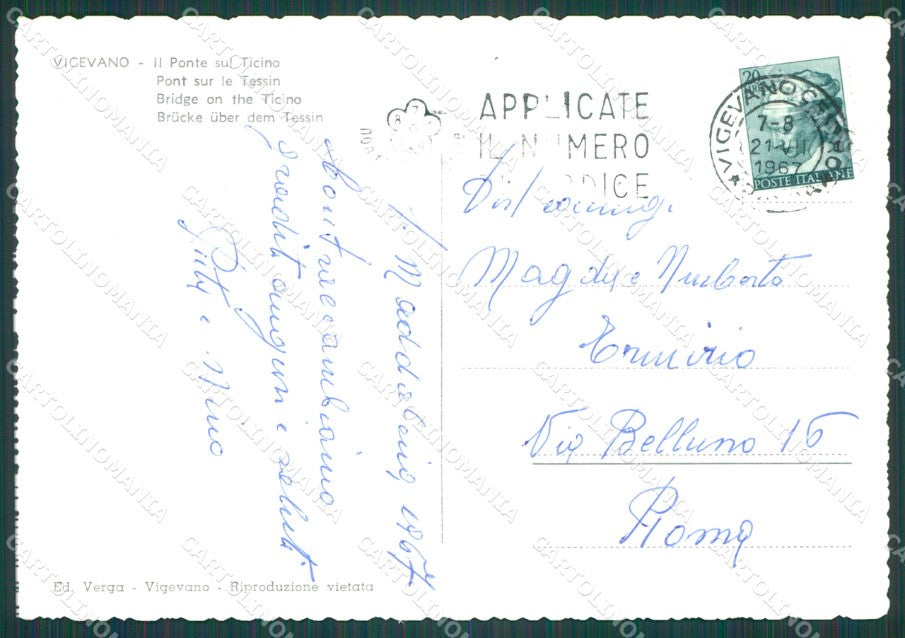 VIGEVANO - Il Ponte sul Ticino
Pont sur le Tessin
Bridge on the Ticino
Brücke über dem Tessin
APPLICATE
IL NUMERO
CODICE
VIGEVANO
7-8
21-VII
1967
20
POSTE ITALIANE
Magda e Umberto
Via Belluno 16
Roma
1967
Contraccambiamo
graditi auguri e saluti
Pity e Nino
Ed. Verga - Vigevano - Riproduzione vietata
CARTOLINOMANIA